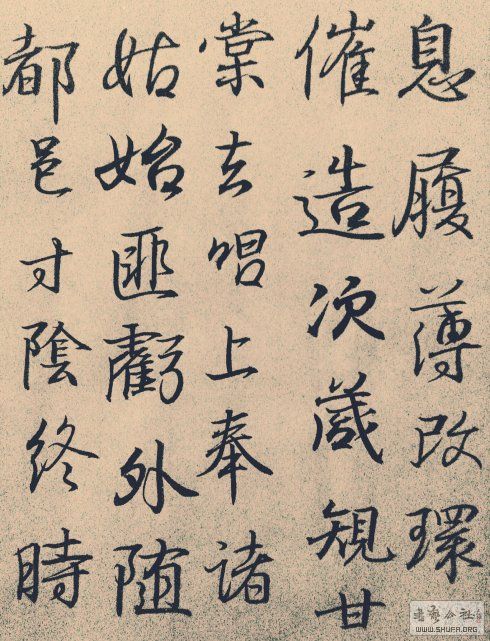 息履薄改環
催造次箴規甘
棠去唱上奉諸
姑始匪虧外随
都邑寸陰終時
WWW.SHUFA.ORG